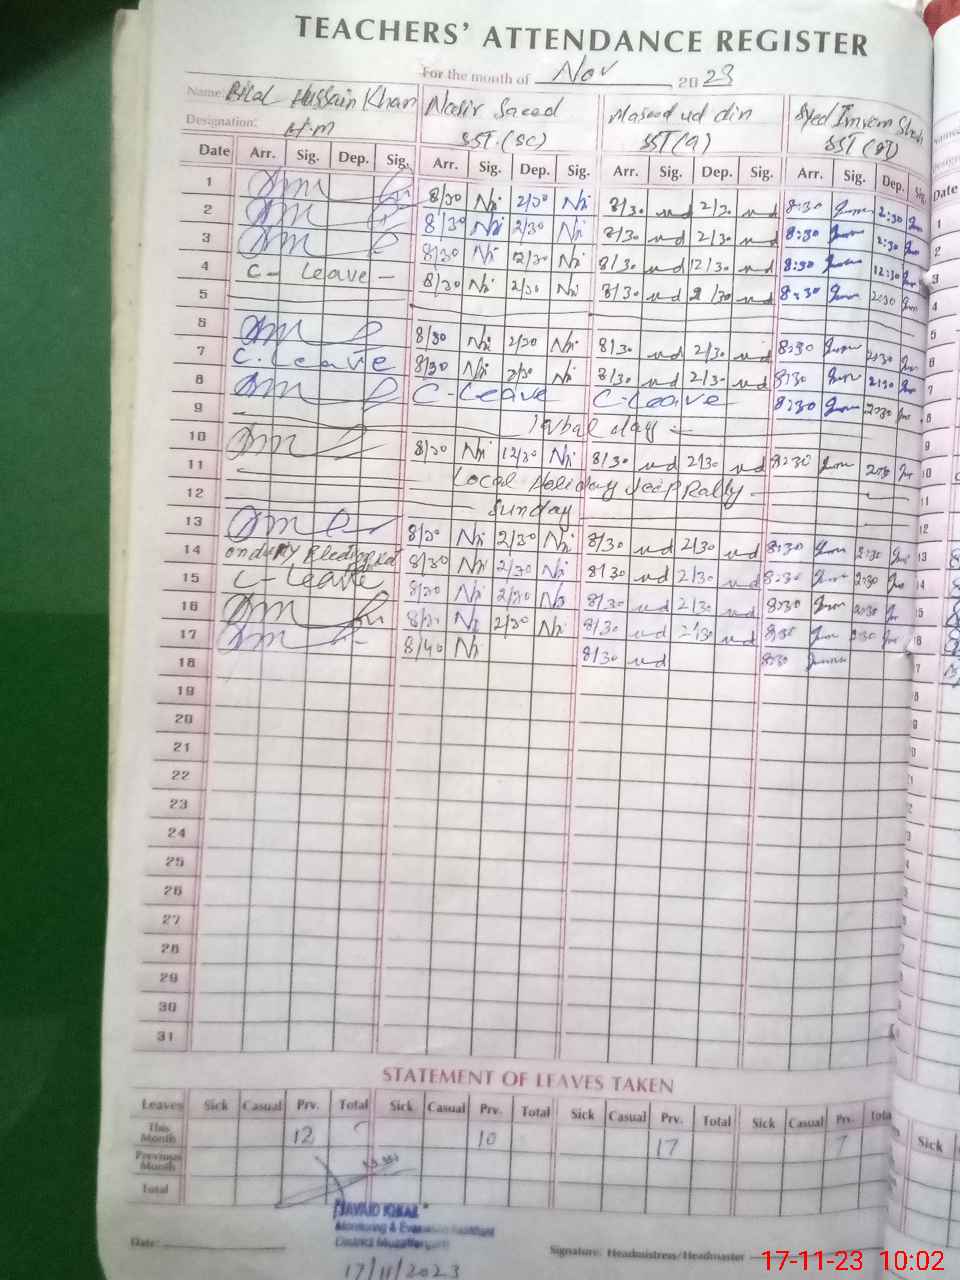 TEACHERS' ATTENDANCE REGISTER
For the month of Nov 2023
Name: Bilal Hussain Khan Nasir Saeed Masood ud din Syed Imran Shah
Designation: H.M SST (SC) SST (G)
Date Arr. Sig. Dep. Sig. Arr. Sig. Dep. Sig. Arr. Sig. Dep. Sig. Arr. Sig. Dep. Sig.
1 8/30 2/30 8/30 2/30 8:30 2:30
2 8/30 2/30 8/30 2/30 8:30 2:30
3 8/30 12/30 8/30 12/30 8:30 12:30
4 C- Leave - 8/30 2/30 8/30 2/30 8:30 2:30
5
6 8/30 2/30 8/30 2/30 8:30 2:30
7 C. Leave 8/30 2/30 8/30 2/30 8:30 2:30
8 C-Leave C-Leave 8:30 2:30
9 Iqbal day
10 8/30 12/30 8/30 2/30 8:30 2:30
11 Local Holiday Jeep Rally
12 Sunday
13 8/30 2/30 8/30 2/30 8:30 2:30
14 on duty 8/30 2/30 8/30 2/30 8:30 2:30
15 C-Leave 8/30 2/30 8/30 2/30 8:30 2:30
16 8/30 2/30 8/30 2/30 8:30 2:30
17 8/40 8/30 8:30
18
19
20
21
22
23
24
25
26
27
28
29
30
31
STATEMENT OF LEAVES TAKEN
Leaves Sick Casual Prv. Total Sick Casual Prv. Total Sick Casual Prv. Total Sick Casual Prv. Total
This Month 12 10 17 7
Previous Month
Total
JAVAID IQBAL
Monitoring & Evaluation Assistant
District Muzaffargarh
Date: Signature: Headmistress/Headmaster
17/11/2023
17-11-23 10:02